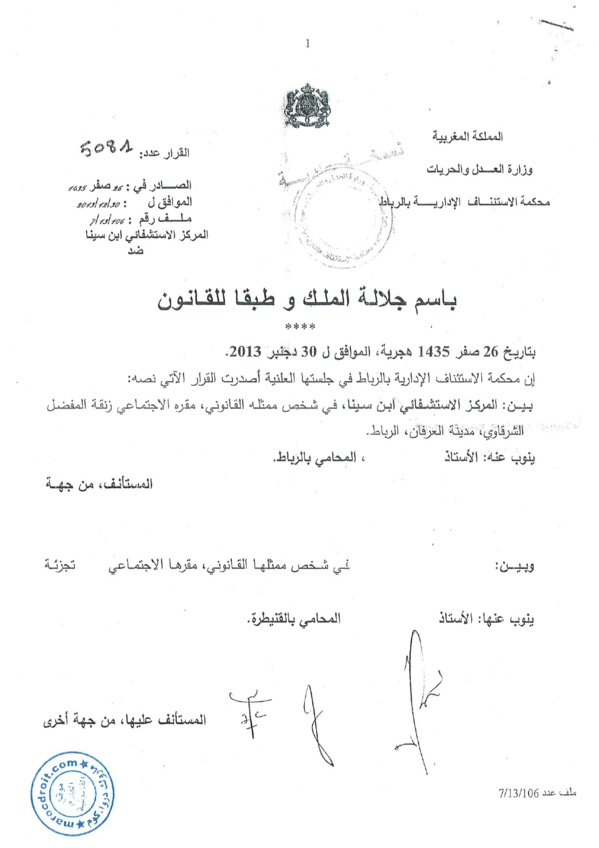 1
المملكة المغربية
وزارة العدل والحريات
محكمة الاستئناف الإدارية بالرباط
نسخة عادية
القرار عدد: 5081
الصادر في: 26 صفر 1435
الموافق ل : 2013/12/30
ملف رقم : 7/13/106
المركز الاستشفائي ابن سينا
ضد
باسم جلالة الملك و طبقا للقانون
****
بتاريخ 26 صفر 1435 هجرية، الموافق ل 30 دجنبر 2013.
إن محكمة الاستئناف الإدارية بالرباط في جلستها العلنية أصدرت القرار الآتي نصه:
بين: المركز الاستشفائي ابن سينا، في شخص ممثله القانوني، مقره الاجتماعي زنقة المفضل
الشرقاوي، مدينة العرفان، الرباط.
ينوب عنه: الأستاذ ، المحامي بالرباط.
المستأنف، من جهة
وبين: في شخص ممثلها القانوني، مقرها الاجتماعي تجزئة
ينوب عنها: الأستاذ المحامي بالقنيطرة.
المستأنف عليها، من جهة أخرى
marocdroit.com
ملف عدد 7/13/106